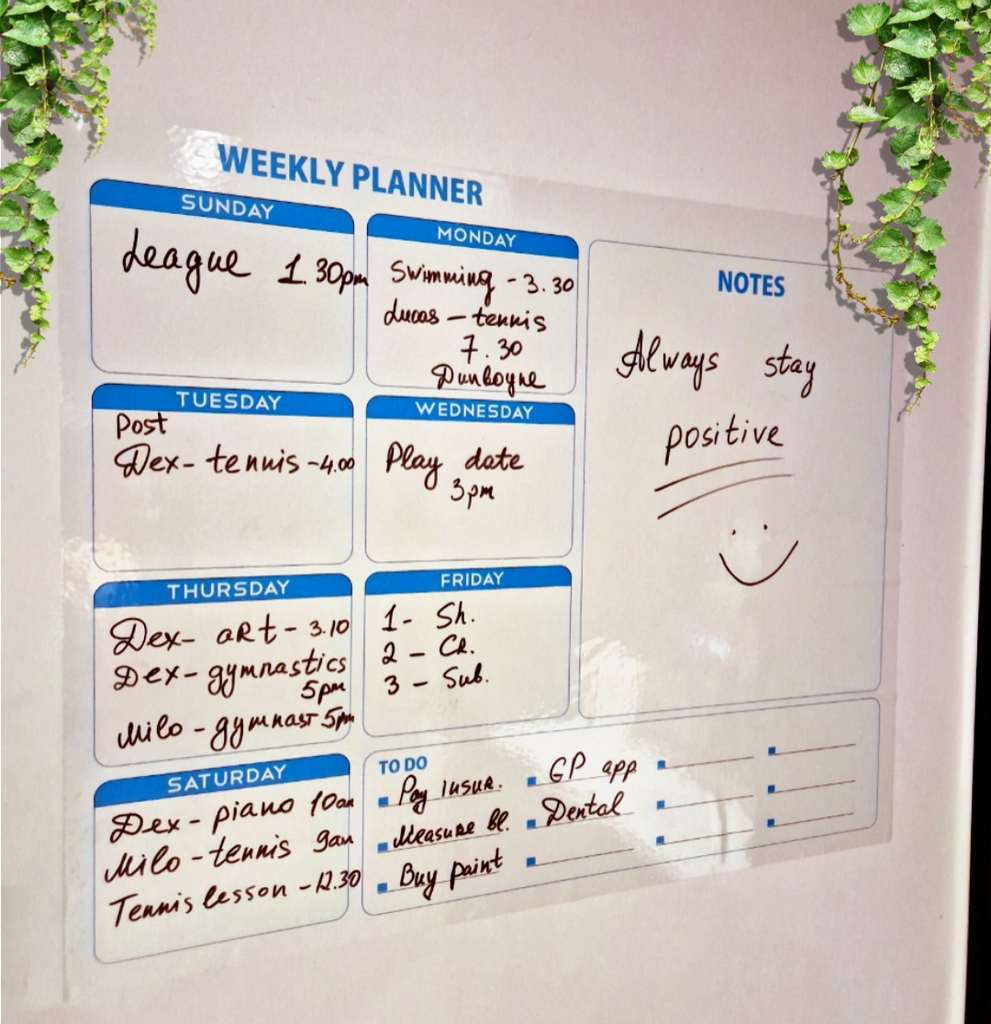 WEEKLY PLANNER
SUNDAY
League 1.30pm
MONDAY
Swimming - 3.30
Lucas - tennis
7.30
Dunboyne
TUESDAY
Post
Dex- tennis -4.00
WEDNESDAY
Play date
3pm
THURSDAY
Dex- aRt - 3.10
Dex- gymnastics
5pm
Milo - gymnast 5pm
FRIDAY
1- Sh.
2 - Cl.
3 - Sub.
SATURDAY
Dex - piano 10am
Milo - tennis 9am
Tennis lesson - 12.30
NOTES
Always stay
positive
TO DO
Pay insur.
Measure Bl.
Buy paint
GP app
Dental